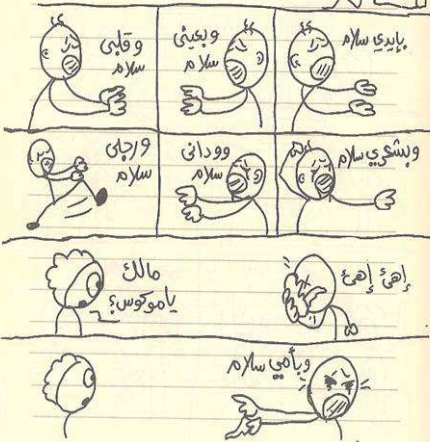 بإيدي سلام
وبعيني
سلام
وقلبي
سلام
وبشعري سلام
وودانى
سلام
ورجلى
سلام
إهئ إهئ
مالك
ياموكوس؟
وبأمي سلام